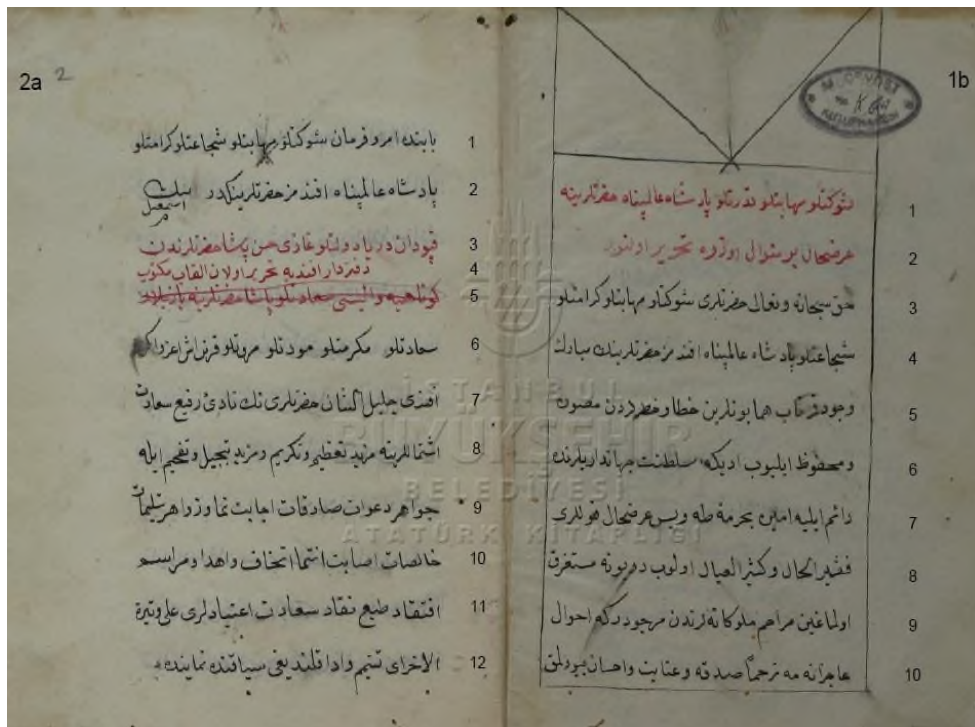 1b
شوكتلو مهابتلو قدرتلو پادشاه عالمپناه حضرتلرينه
عرضحال بر منوال اوزره تحرير اولنور
حق سبحانه وتعالى حضرتلرى شوكتلو مهابتلو كرامتلو
شجاعتلو پادشاه عالمپناه افندمز حضرتلرينك مبارك
وجود همايونلرين خطا وخطردن مصون
ومحفوظ ايليوب اديكه سلطنت جهانداريلرنده
دائم ايليه امين بحرمة طه ويس عرضحال قوللرى
فقير الحال وكثير العيال اولوب ديونه مستغرق
اولماغين مراحم ملوكانه لرندن مرجودركه احوال
عاجزانه مه ترحماً صدقه وعنايت واحسان بيوردلمق
1
2
3
4
5
6
7
8
9
10
2a 2
بابنده امر وفرمان شوكتلو مهابتلو شجاعتلو كرامتلو
پادشاه عالمپناه افندمز حضرتلرينكدر اسمعيل
قپودان دريا دولتلو غازى حسن پاشا حضرتلرندن
دفتردار افندى يه تحرير اولان القاب مكتوب
كوتاهيه واليسى سعادتلو پاشا حضرتلرينه
سعادتلو مكرمتلو مودتلو مروتلو قرنداش اعز واكرم
افندى جليل الشان حضرتلرى نك نادئ رفيع سعادت
اشتماللرينه مزيد تعظيم وتكريم ومزيد تبجيل وتفخيم ايله
جواهر دعوات صادقات اجابت نما وزواهر تسليمات
خالصات اصابت انتما اتحاف واهدا ومراسم
افتقاد طبع نقاد سعادت اعتيادلرى على وتيرة
الاخراى تتيم وادا قلنديغى سياقنده نماينده
1
2
3
4
5
6
7
8
9
10
11
12
İSTANBUL
BÜYÜKŞEHİR
BELEDİYESİ
ATATÜRK KİTAPLIĞI